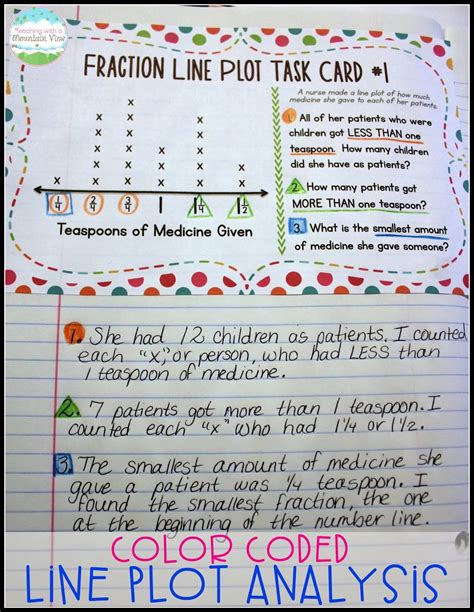 Teaching with a
Mountain View
FRACTION LINE PLOT TASK CARD #1
A nurse made a line plot of how much
medicine she gave to each of her patients.
1. All of her patients who were
children got LESS THAN one
teaspoon. How many children
did she have as patients?
2. How many patients got
MORE THAN one teaspoon?
3. What is the smallest amount
of medicine she gave someone?
x x
x x x
x x x x
x x x x x
x x x x x x
1/4 2/4 3/4 1 1 1/4 1 1/2
Teaspoons of Medicine Given
1. She had 12 children as patients. I counted
each "x", or person, who had LESS than
1 teaspoon of medicine.
2. 7 patients got more than 1 teaspoon. I
counted each "x" who had 1 1/4 or 1 1/2.
3. The smallest amount of medicine she
gave a patient was 1/4 teaspoon. I
found the smallest fraction, the one
at the beginning of the number line.
COLOR CODED
LINE PLOT ANALYSIS